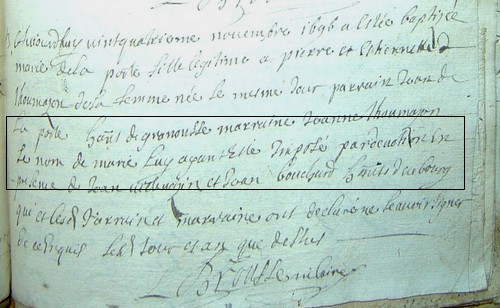 Aujourdhuy vintquatriesme novembre 1696 a esté baptisée
marie de la porte fille legitime a pierre et
thoumazon de sa femme née le mesme jour parrain Jean de
la porte marraine Jeanne thoumazon
le nom de marie luy ayant Esté Imposé par devotion En
presence de Jean et Jean bouchard du bourg
qui et lesd parrain et marraine ont declaré ne scavoir signer
de ce enquis lesd jour et an que dessus
vicaire